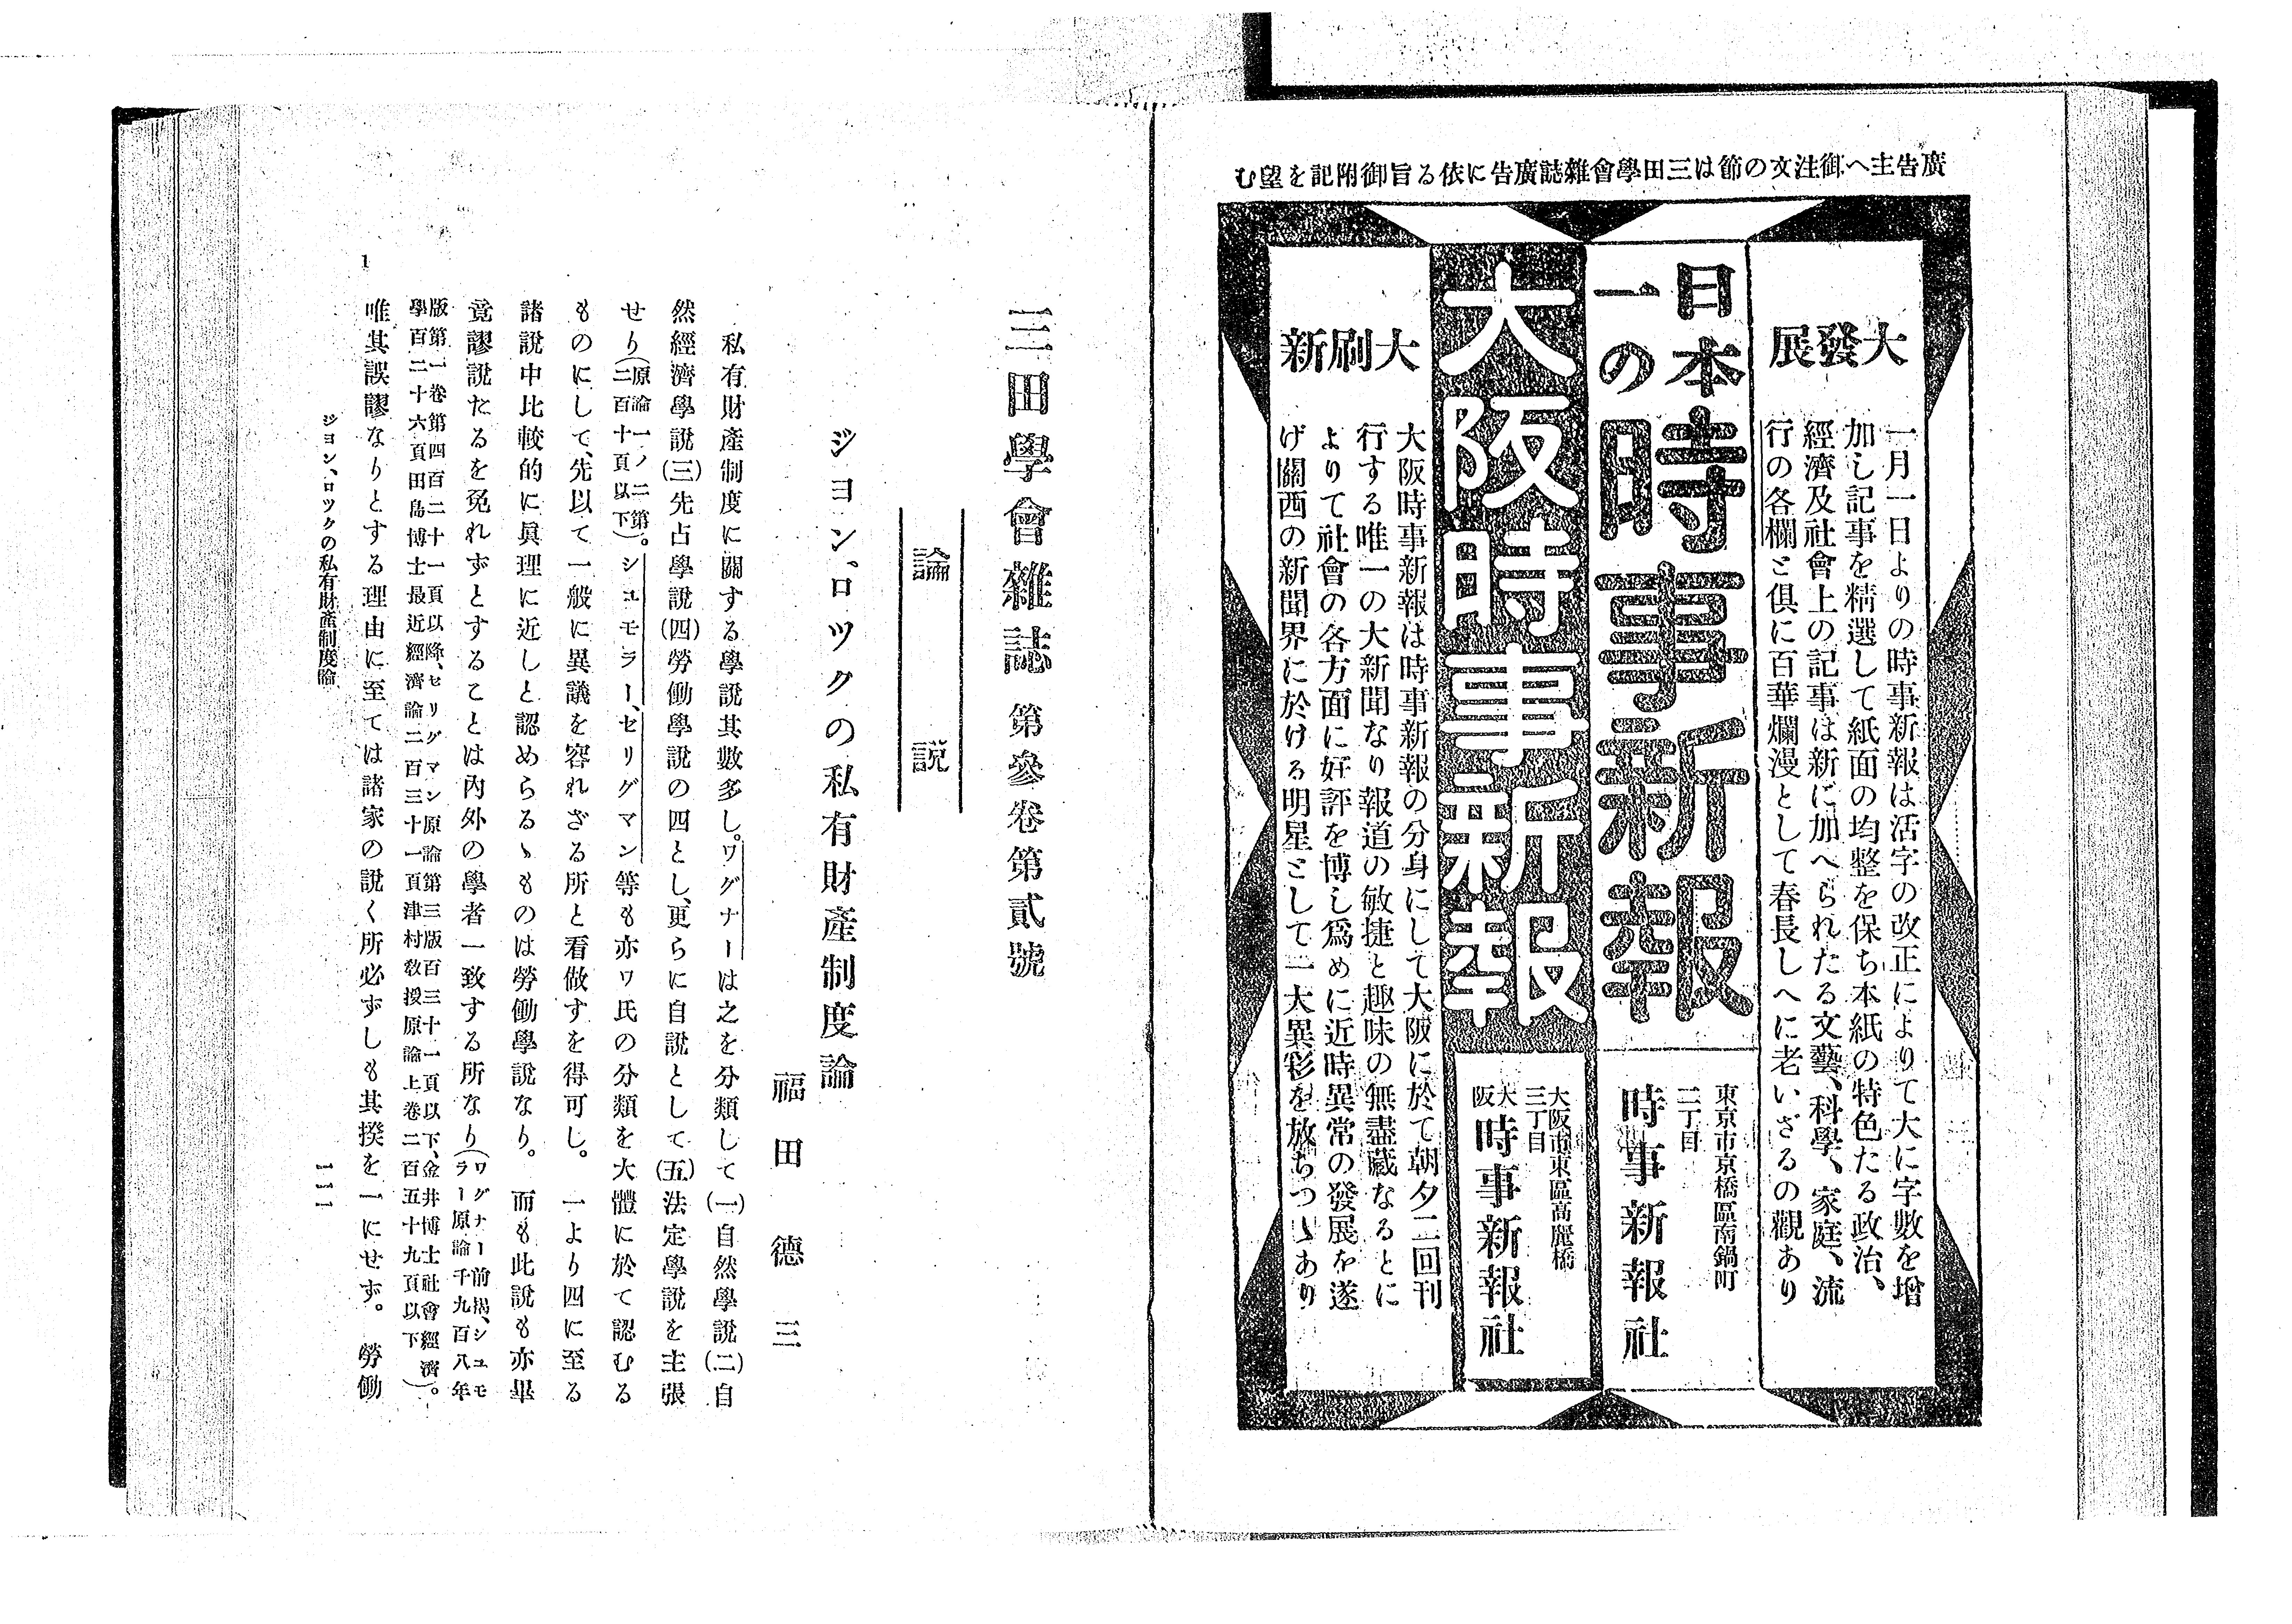 廣告主へ御注文の節は三田學會雜誌廣告に依る旨御附記を望む
大發展
一月一日よりの時事新報は活字の改正によりて大に字數を增
加し記事を精選して紙面の均整を保ち本紙の特色たる政治、
經濟及社會上の記事は新に加へられたる文藝、科學、家庭、流
行の各欄と俱に百華爛漫として春長しへに老いざるの觀あり
日本一の時事新報
東京市京橋區南鍋町
二丁目
時事新報社
大阪時事新報
大阪市東區高麗橋
三丁目
大阪時事新報社
大刷新
大阪時事新報は時事新報の分身にして大阪に於て朝夕二回刊
行する唯一の大新聞なり報道の敏捷と趣味の無盡藏なるとに
よりて社會の各方面に好評を博し爲めに近時異常の發展を遂
げ關西の新聞界に於ける明星として一大異彩を放ちつゝあり
三田學會雜誌 第參卷第貳號
論說
ジヨン、ロツクの私有財產制度論
福田德三
私有財產制度に關する學說其數多し。ワグナーは之を分類して(一)自然學說(二)自
然經濟學說(三)先占學說(四)勞働學說の四とし、更らに自說として(五)法定學說を主張
せり(原論一ノ二第二百十頁以下)。シユモラー、セリグマン等も亦ワ氏の分類を大體に於て認むる
ものにして、先以て一般に異議を容れざる所と看做すを得可し。一より四に至る
諸說中比較的に眞理に近しと認めらるゝものは勞働學說なり。而も此說も亦畢
竟謬說たるを免れずとすることは內外の學者一致する所なり(ワグナー前揭、シユモラー原論千九百八年
版第一卷第四百二十一頁以降、セリグマン原論第三版百三十一頁以下、金井博士社會經濟
學百二十六頁田島博士最近經濟論二百三十一頁津村敎授原論上卷二百五十九頁以下)。
唯其誤謬なりとする理由に至ては諸家の說く所必ずしも其揆を一にせず。勞働
ジヨン、ロツクの私有財產制度論
一一一
1